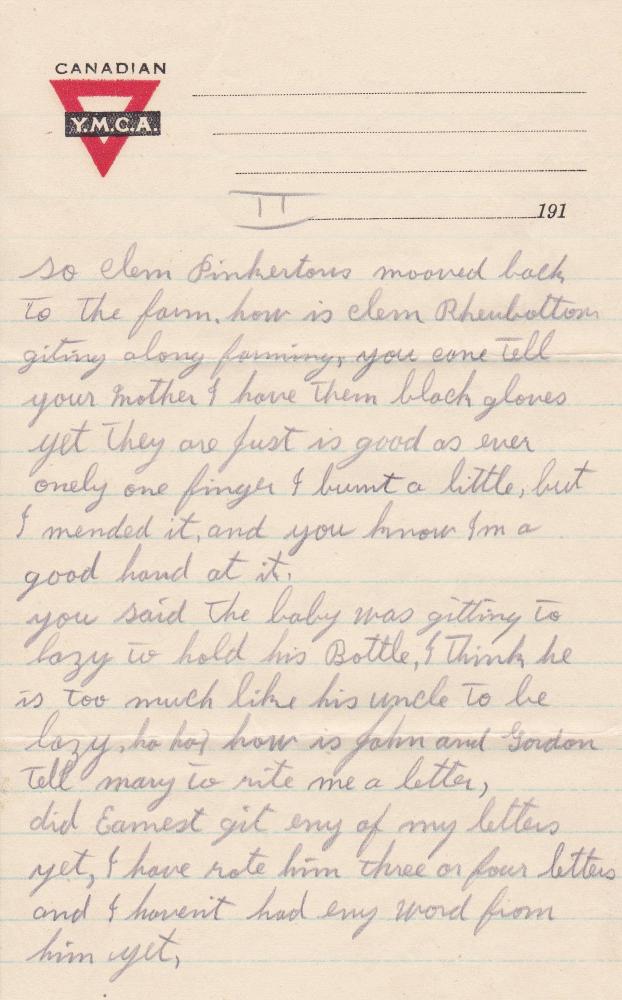 CANADIAN
Y.M.C.A.
II
191
so Clem Pinkertons mooved back
to the farm, how is clem Rheubottom
giting along farming, you cane tell
your Mother I have them black gloves
yet they are just is good as ever
onely one finger I burnt a little, but
I mended it, and you know Im a
good hand at it.
you said the baby was gitting to
lazy to hold his Bottle, I think he
is too much like his uncle to be
lazy, ha ha, how is John and Gordon
Tell mary to rite me a letter,
did Earnest git eny of my letters
yet, I have rote him three or four letters
and I havent had eny word from
him yet,